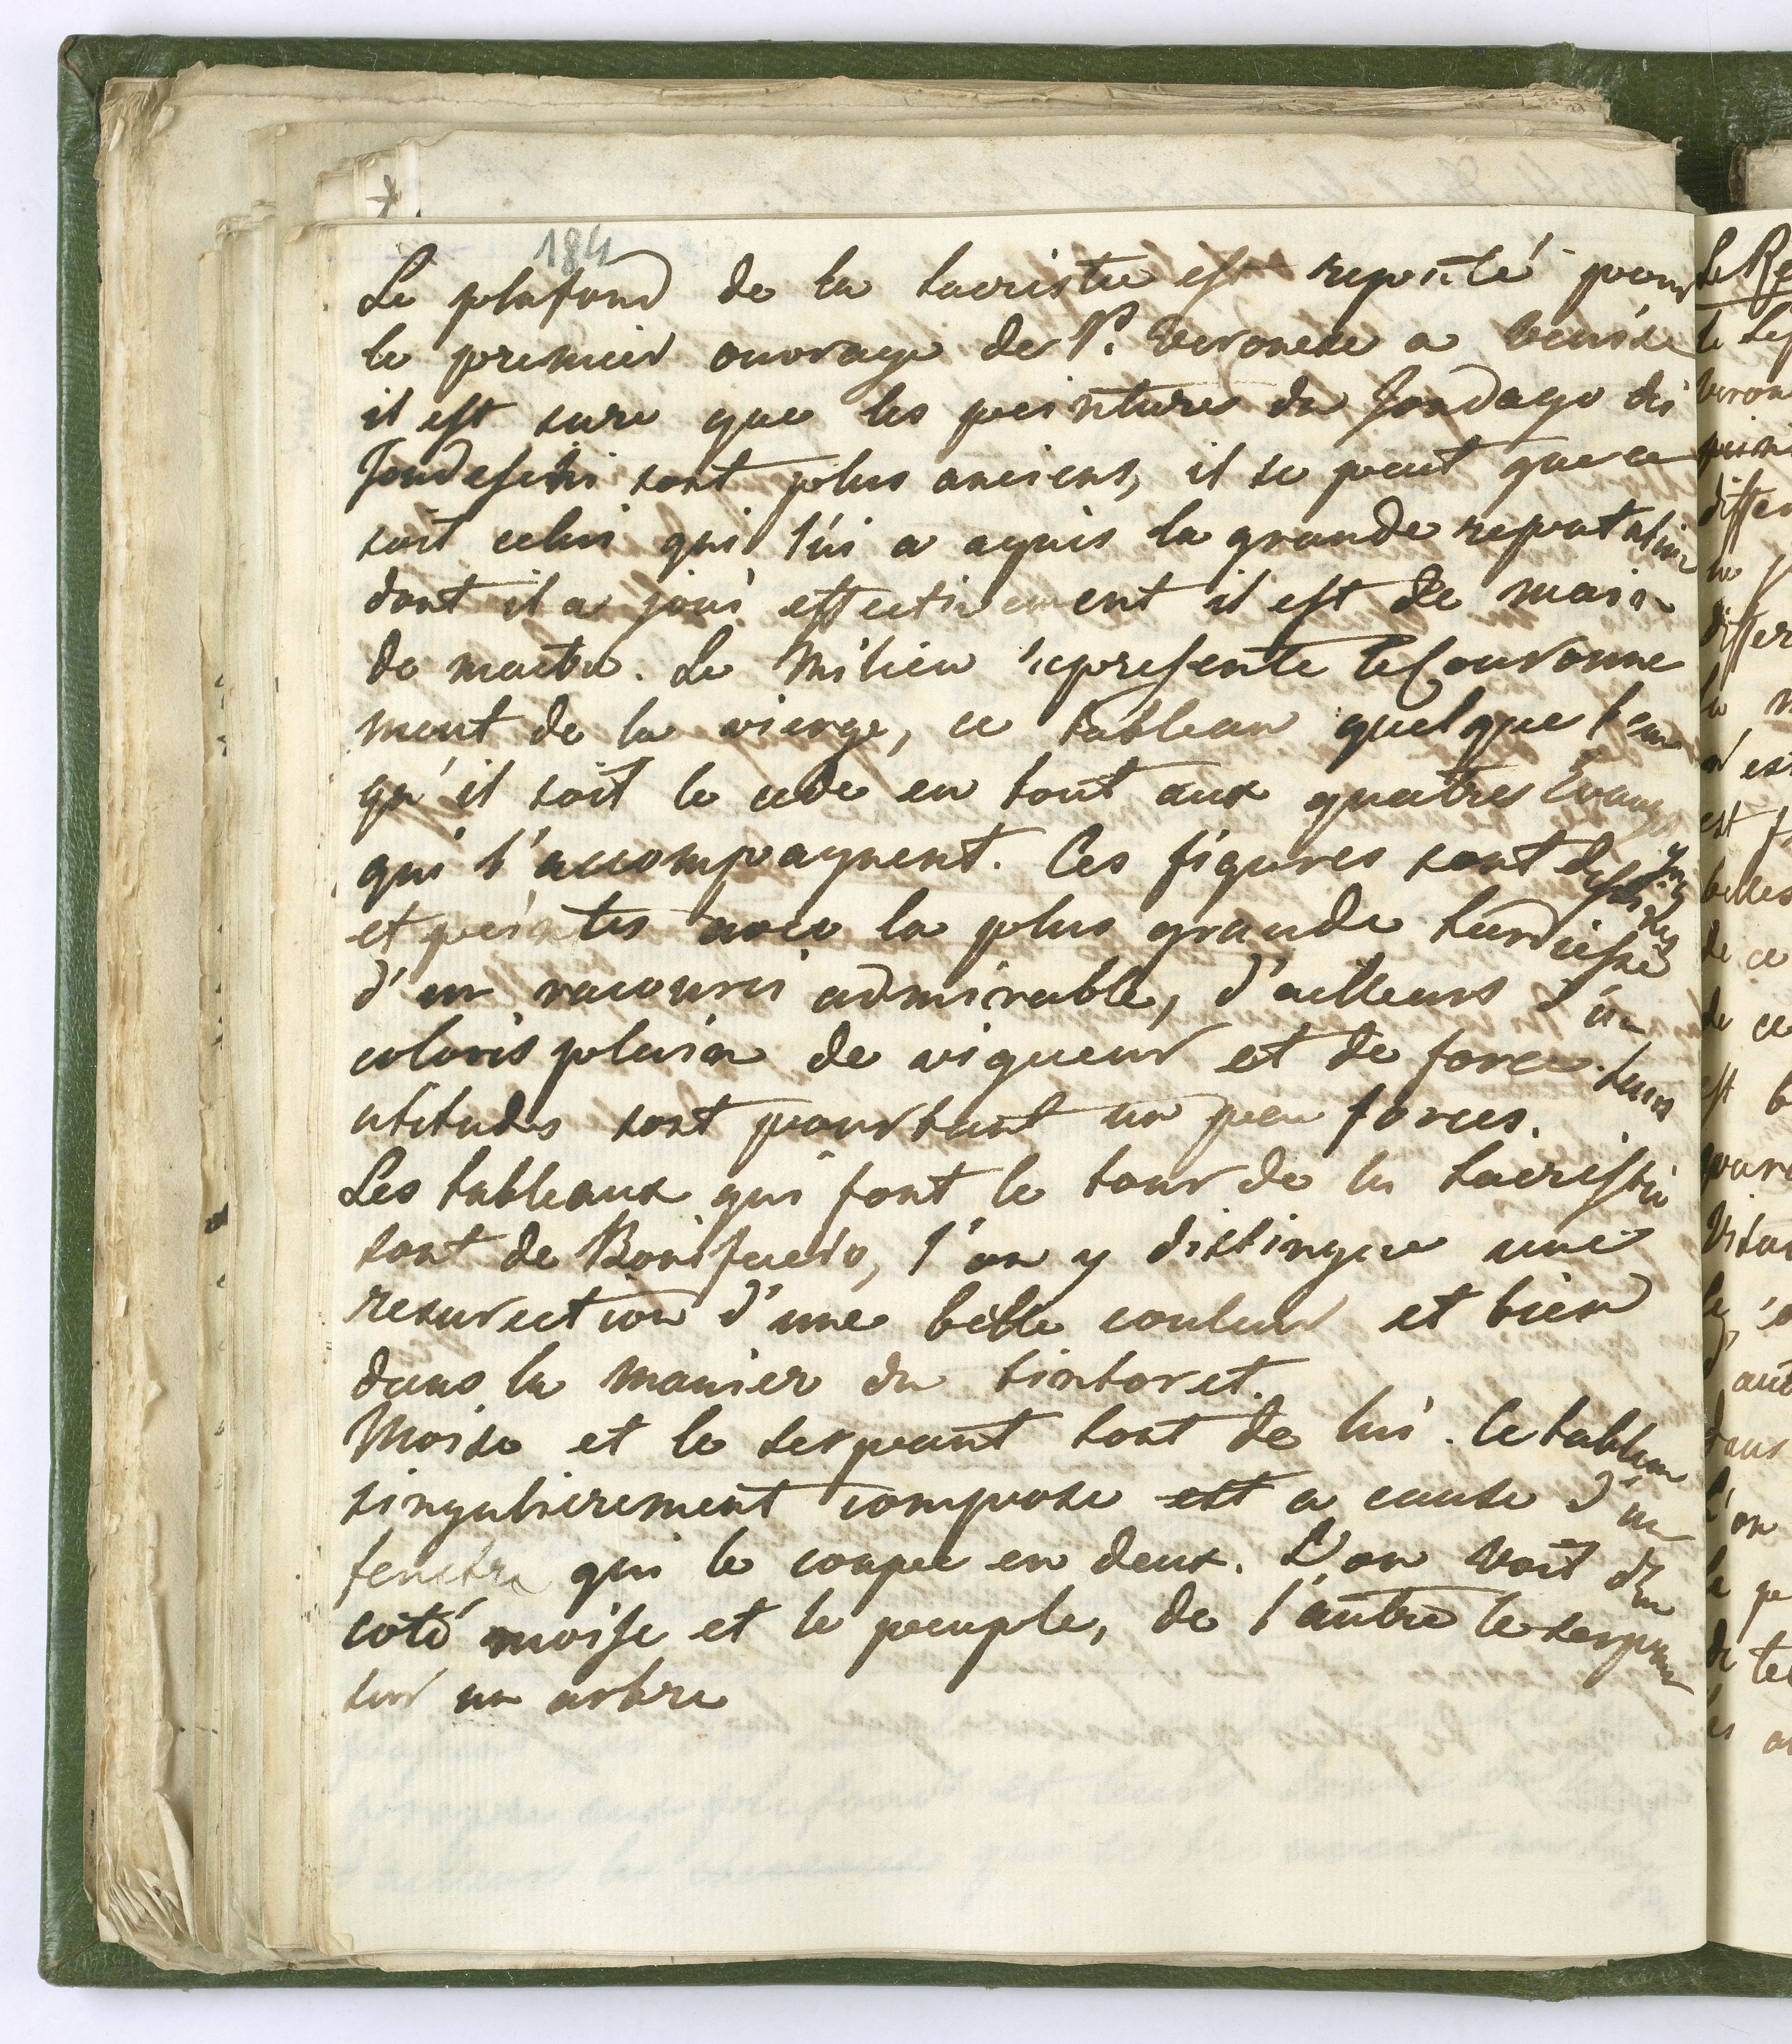 184
Le plafond de la sacristie est reputé pour
le premier ouvrage de P. Veronese a Venise
il est sure que les peintures du fondago dei
fondeschi sont plus anciens, il se peut que ce
soit celui qui l'ui a aquis la grande reputation
dont il a joui effectivement il est de main
de maitre. Le Milieu represente le Couronne
ment de la vierge, ce tableau quelque beau
qu'il soit le cede en tout aux quatres Evang
qui l'accompagnent. Ces figures sont
et peintes avec la plus grande hardiesse
d'un racourci admirable, d'ailleurs d'un
coloris plain de vigueur et de force. leurs
atitudes sont pourtant un peu forces.
Les tableaux qui font le tour de la sacristie
sont de Bonifacio, l'on y distingue une
resurection d'une belle couleur et bien
dans la manier du tintoret.
Moise et le serpant sont de lui. le tableau
singulierement compose est a cause d'un
fenetre qui le coupe en deux. L'on voit d'un
coté moise et le peuple, de l'autre le serpan
sur un arbre